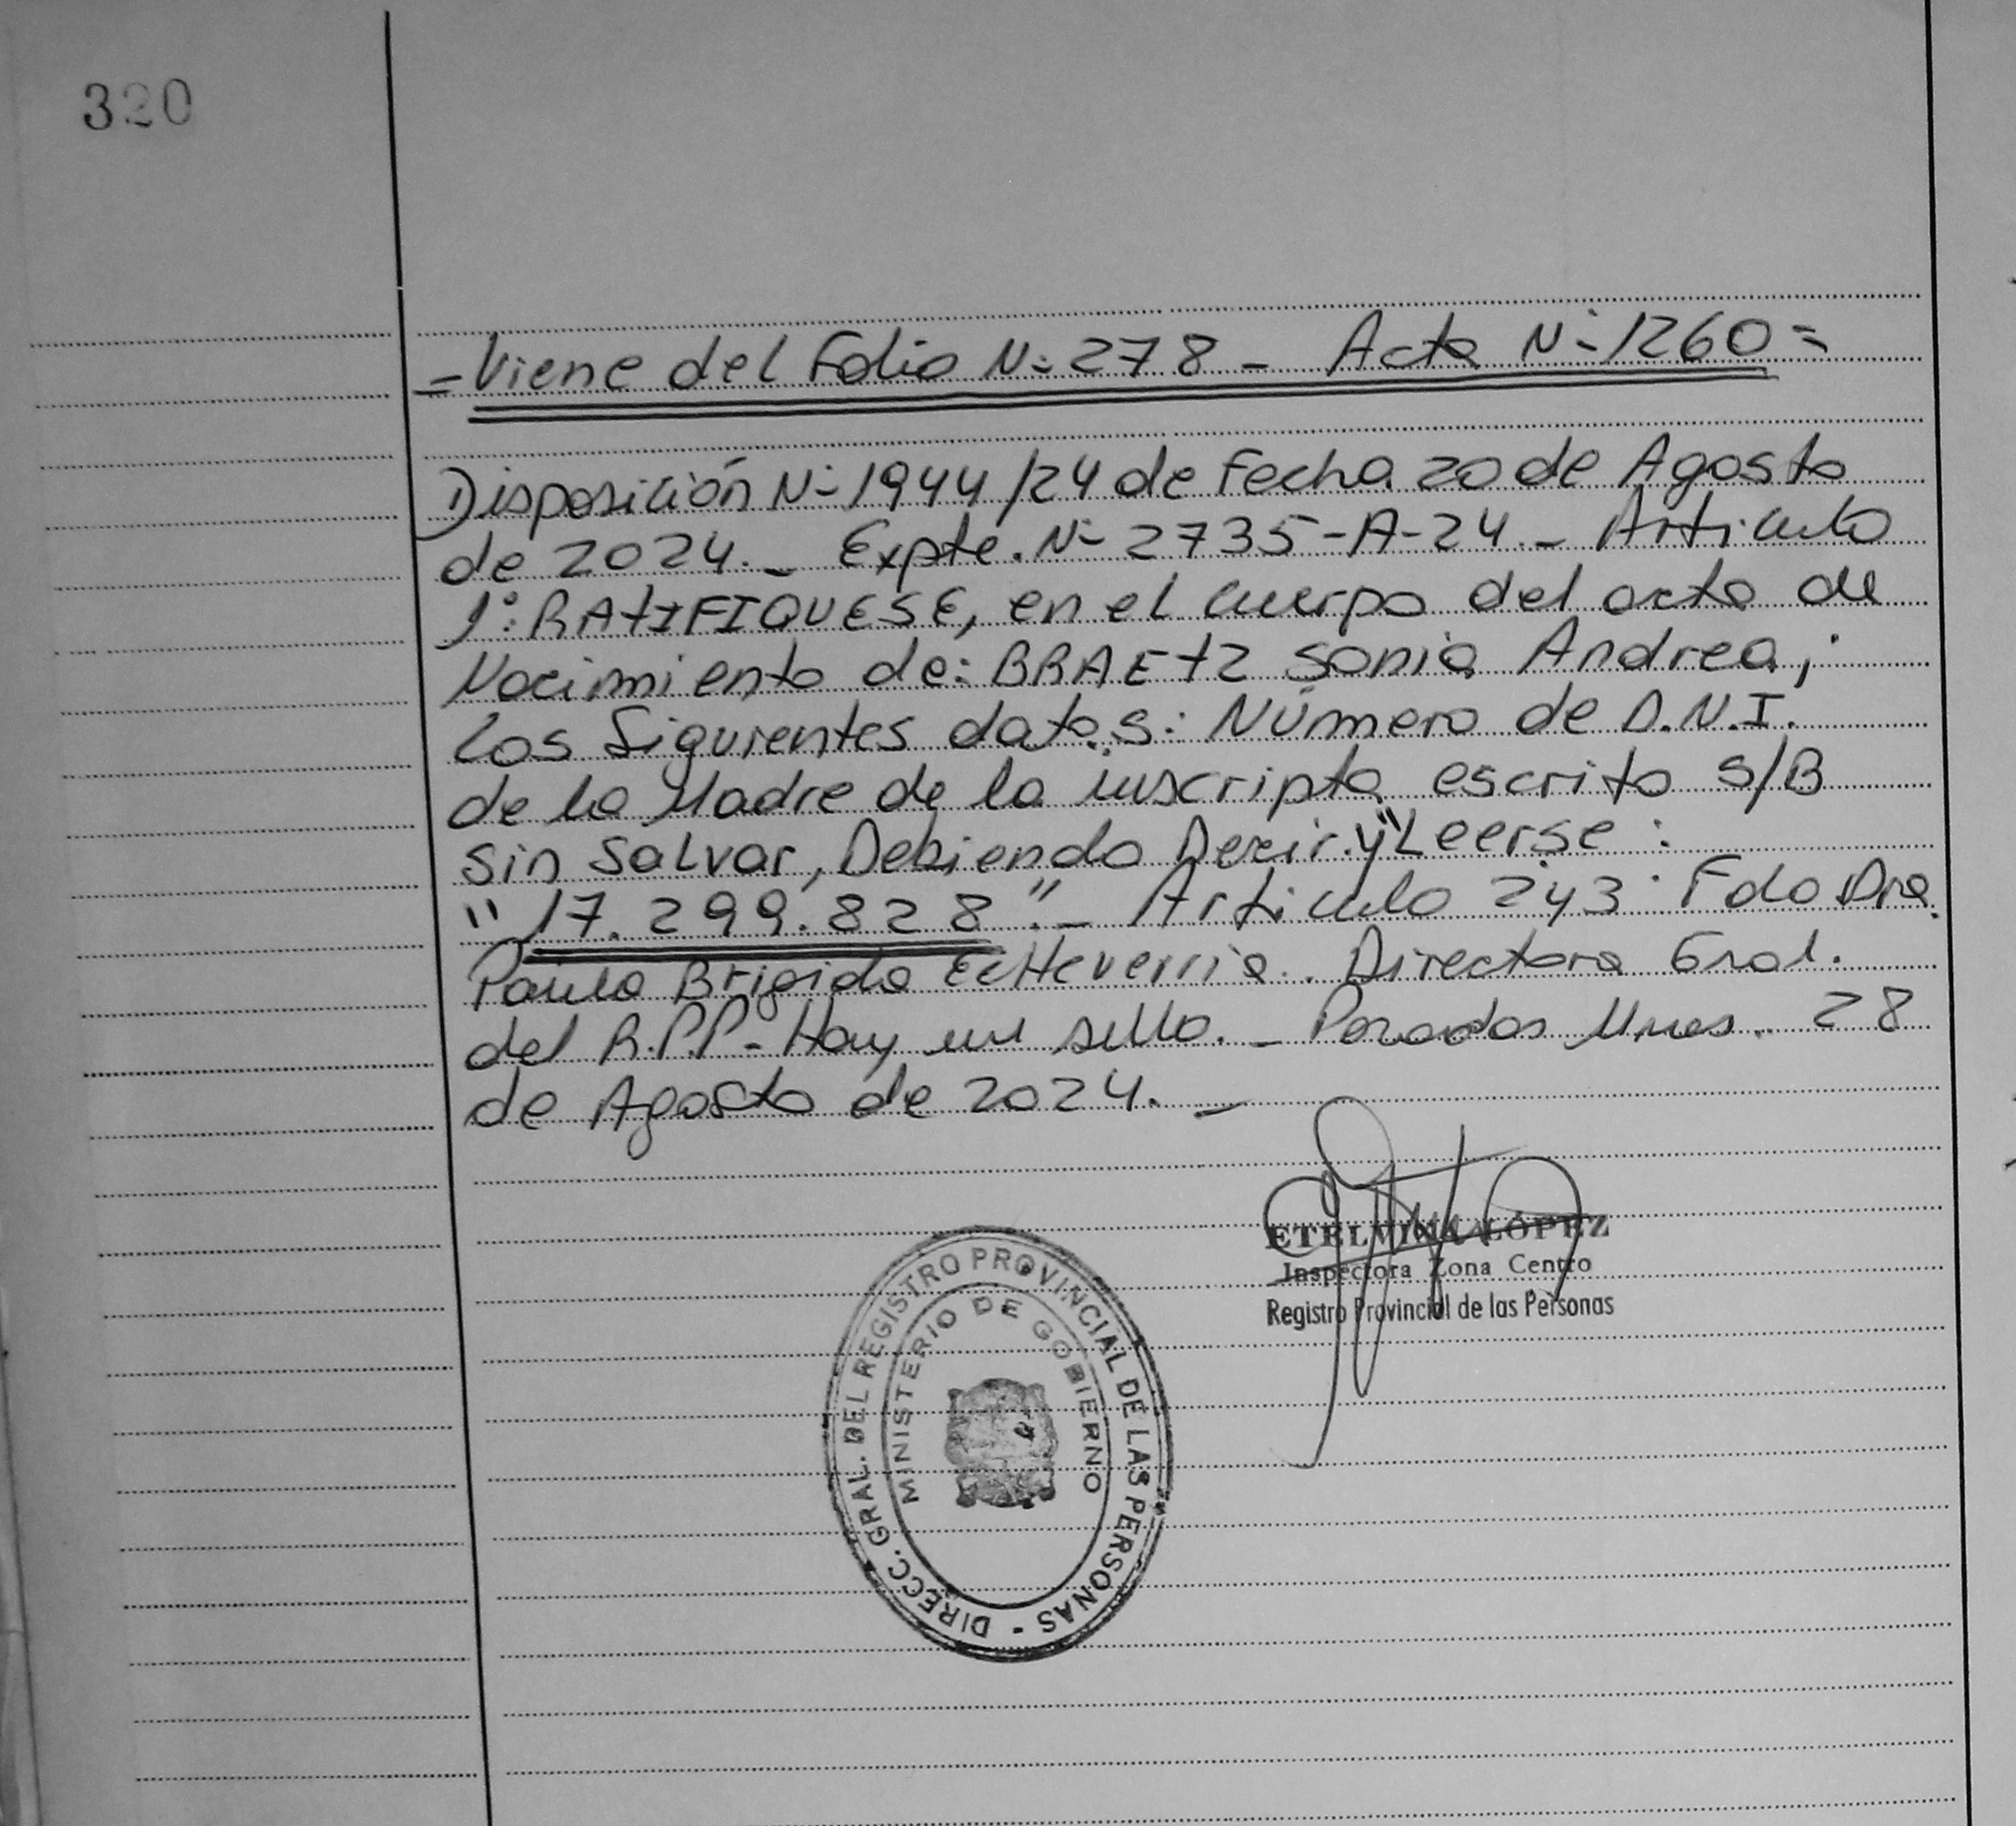 320
= Viene del Folio N= 278 - Acta N= 1260 =
Disposición N= 1944/24 de Fecha 20 de Agosto
de 2024._ Expte. N= 2735-A-24._ Articulo
1°: RATIFIQUESE, en el cuerpo del acta de
Nacimiento de: BRAETZ Sonia Andrea,
los Siguientes datos: Número de D.N.I.
de la Madre de la inscripta escrito S/B
Sin Salvar, Debiendo Decir y Leerse:
"17.299.828"._ Articulo 2 y 3 Fdo Dra.
Paula Brigida Echeverria. Directora Gral.
del R.P.P- Hay un sello._ Posadas Mnes. 28
de Agosto de 2024._
ETELVINA LÓPEZ
Inspectora Zona Centro
Registro Provincial de las Personas
DIRECC. GRAL. DEL REGISTRO PROVINCIAL DE LAS PERSONAS -
MINISTERIO DE GOBIERNO